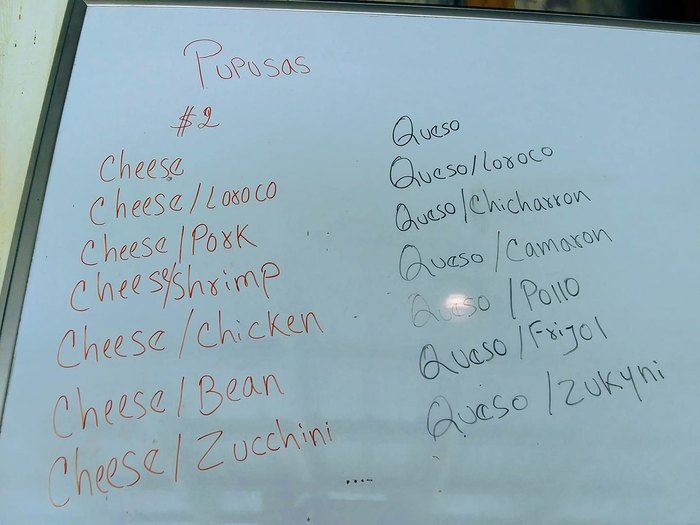 Pupusas
$2
Cheese
Cheese/Loroco
Cheese/Pork
Cheese/Shrimp
Cheese/Chicken
Cheese/Bean
Cheese/Zucchini
Queso
Queso/Loroco
Queso/Chicharron
Queso/Camaron
Queso/Pollo
Queso/Frijol
Queso/Zukyni